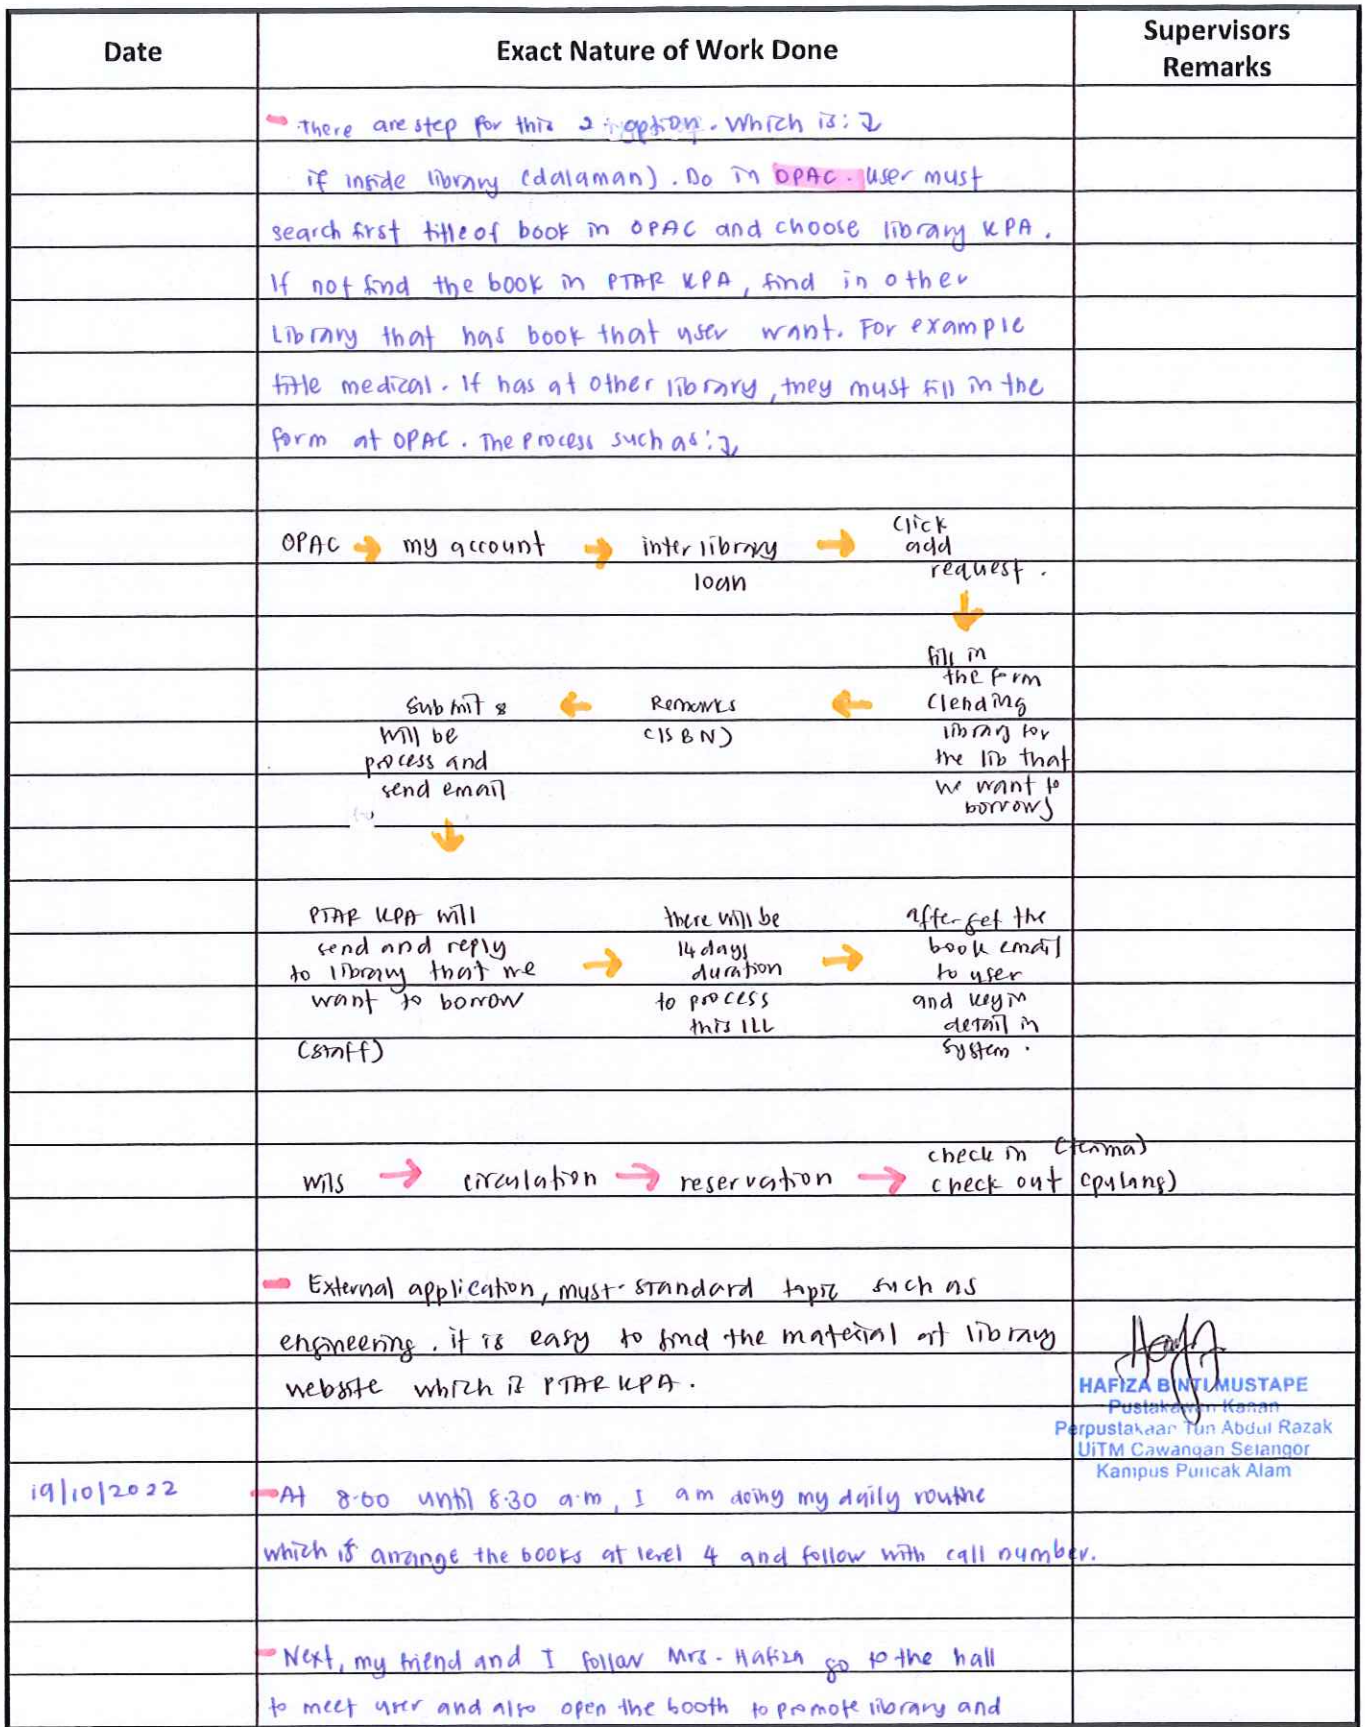 Date
Exact Nature of Work Done
Supervisors
Remarks
- There are step for this 2 option. Which is:
if inside library (dalaman). Do in OPAC. User must
search first title of book in OPAC and choose library KPA.
If not find the book in PTAR KPA, find in other
Library that has book that user want. For example
title medical. If has at other library, they must fill in the
form at OPAC. The process such as:
OPAC → my account → inter library loan → Click add request.
fill in
the form
(lending
library for
the lib that
we want to
borrow)
← Remarks
(ISBN)
← Submit &
will be
process and
send email
PTAR KPA will
send and reply
to library that we
want to borrow
(staff)
→ there will be
14 days
duration
to process
this ILL
→ after get the
book email
to user
and key in
detail in
system.
wils → circulation → reservation → check in (terima)
check out (pulang)
- External application, must standard topic such as
engineering. it is easy to find the material at library
website which is PTAR KPA.
HAFIZA BINTI MUSTAPE
Pustakawan Kanan
Perpustakaan Tun Abdul Razak
UiTM Cawangan Selangor
Kampus Puncak Alam
19/10/2022
- At 8.00 until 8.30 a.m, I am doing my daily routine
which is arrange the books at level 4 and follow with call number.
- Next, my friend and I follow Mrs. Hafiza go to the hall
to meet user and also open the booth to promote library and